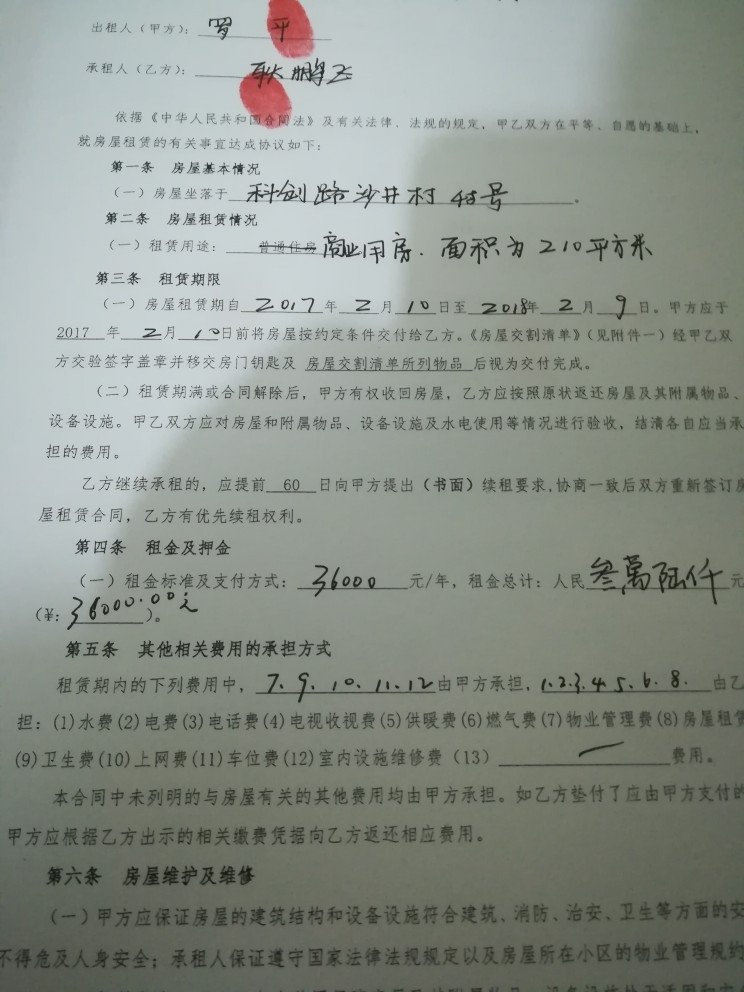 出租人（甲方）：罗平
承租人（乙方）：耿鹏飞
依据《中华人民共和国合同法》及有关法律、法规的规定，甲乙双方在平等、自愿的基础上，
就房屋租赁的有关事宜达成协议如下：
第一条 房屋基本情况
（一）房屋坐落于 科创路沙井村 号 。
第二条 房屋租赁情况
（一）租赁用途： 普通住房 商业用房．面积为210平方米
第三条 租赁期限
（一）房屋租赁期自 2017 年 2 月 10 日至 2018年 2 月 9 日。甲方应于
2017 年 2 月 10 日前将房屋按约定条件交付给乙方。《房屋交割清单》（见附件一）经甲乙双
方交验签字盖章并移交房门钥匙及 房屋交割清单所列物品 后视为交付完成。
（二）租赁期满或合同解除后，甲方有权收回房屋，乙方应按照原状返还房屋及其附属物品、
设备设施。甲乙双方应对房屋和附属物品、设备设施及水电使用等情况进行验收，结清各自应当承
担的费用。
乙方继续承租的，应提前 60 日向甲方提出（书面）续租要求,协商一致后双方重新签订房
屋租赁合同，乙方有优先续租权利。
第四条 租金及押金
（一）租金标准及支付方式： 36000 元/年，租金总计：人民 叁萬陆仟 元
（¥: 36000.00元 ）。
第五条 其他相关费用的承担方式
租赁期内的下列费用中， 7.9.10.11.12 由甲方承担，1.2.3.4.5.6.8. 由乙
担：(1)水费(2)电费(3)电话费(4)电视收视费(5)供暖费(6)燃气费(7)物业管理费(8)房屋租赁
(9)卫生费(10)上网费(11)车位费(12)室内设施维修费（13） 费用。
本合同中未列明的与房屋有关的其他费用均由甲方承担。如乙方垫付了应由甲方支付的
甲方应根据乙方出示的相关缴费凭据向乙方返还相应费用。
第六条 房屋维护及维修
（一）甲方应保证房屋的建筑结构和设备设施符合建筑、消防、治安、卫生等方面的安
不得危及人身安全；承租人保证遵守国家法律法规规定以及房屋所在小区的物业管理规约